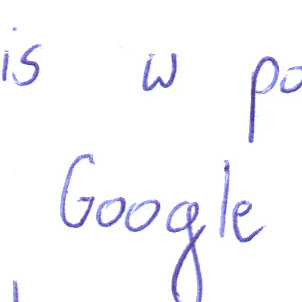 is w po
Google